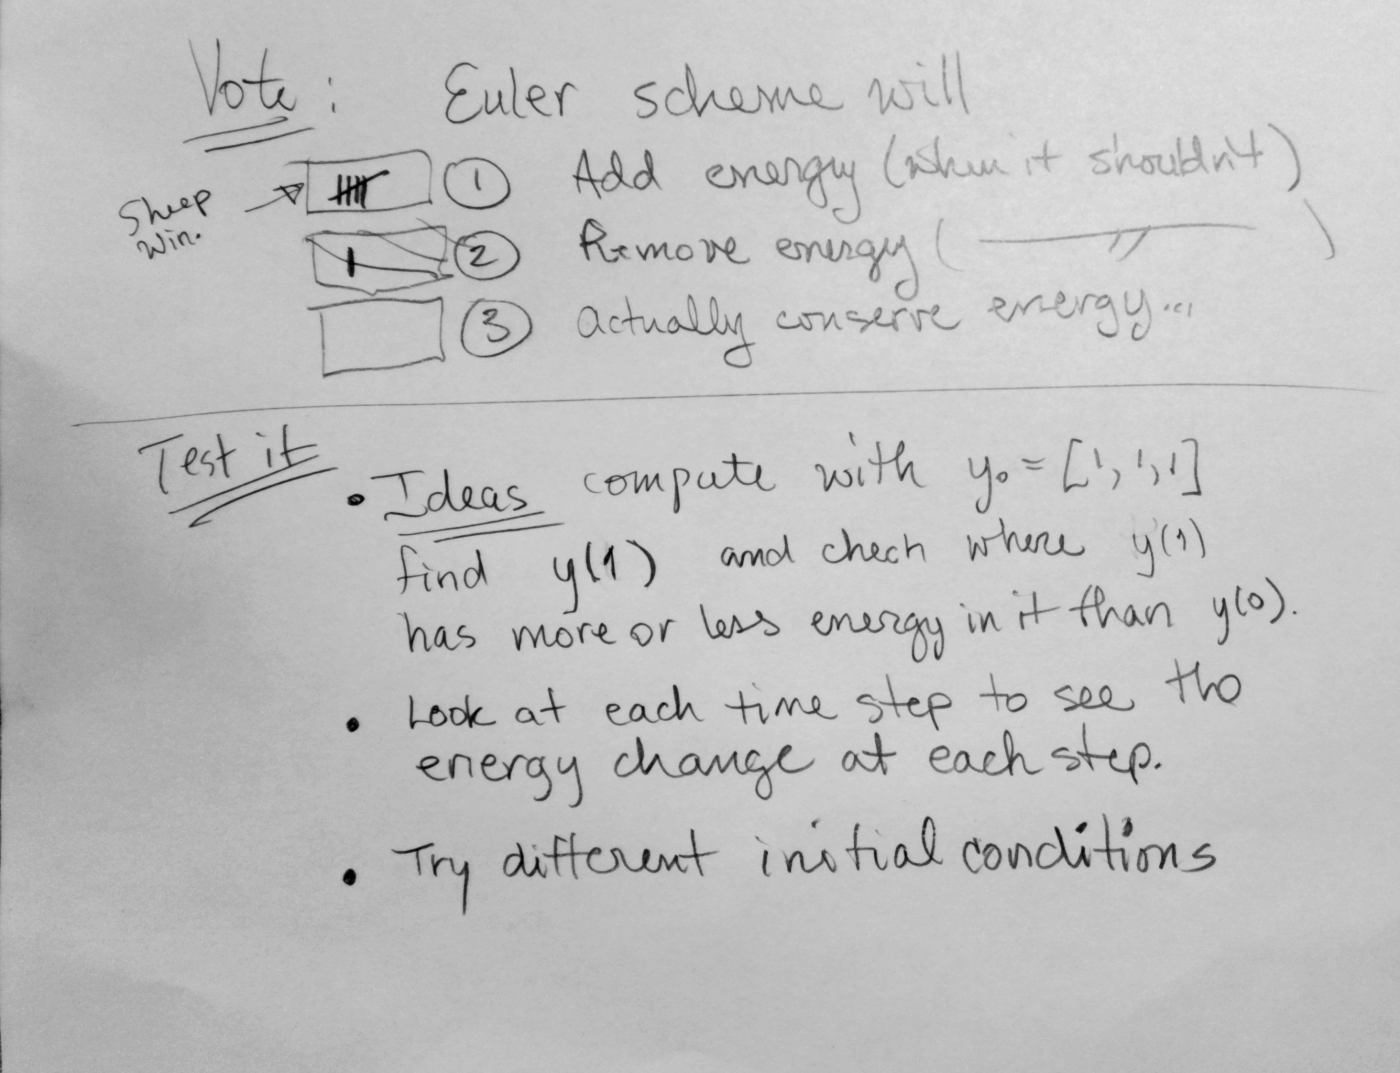 Vote: Euler scheme will
Sheep win. → 卌 ① Add energy (when it shouldn't)
1 ② Remove energy ( — " — )
③ actually conserve energy...
Test it
• Ideas compute with y₀ = [1, 1, 1]
find y(1) and chech where y(1)
has more or less energy in it than y(0).
• Look at each time step to see tho
energy change at each step.
• Try different initial conditions